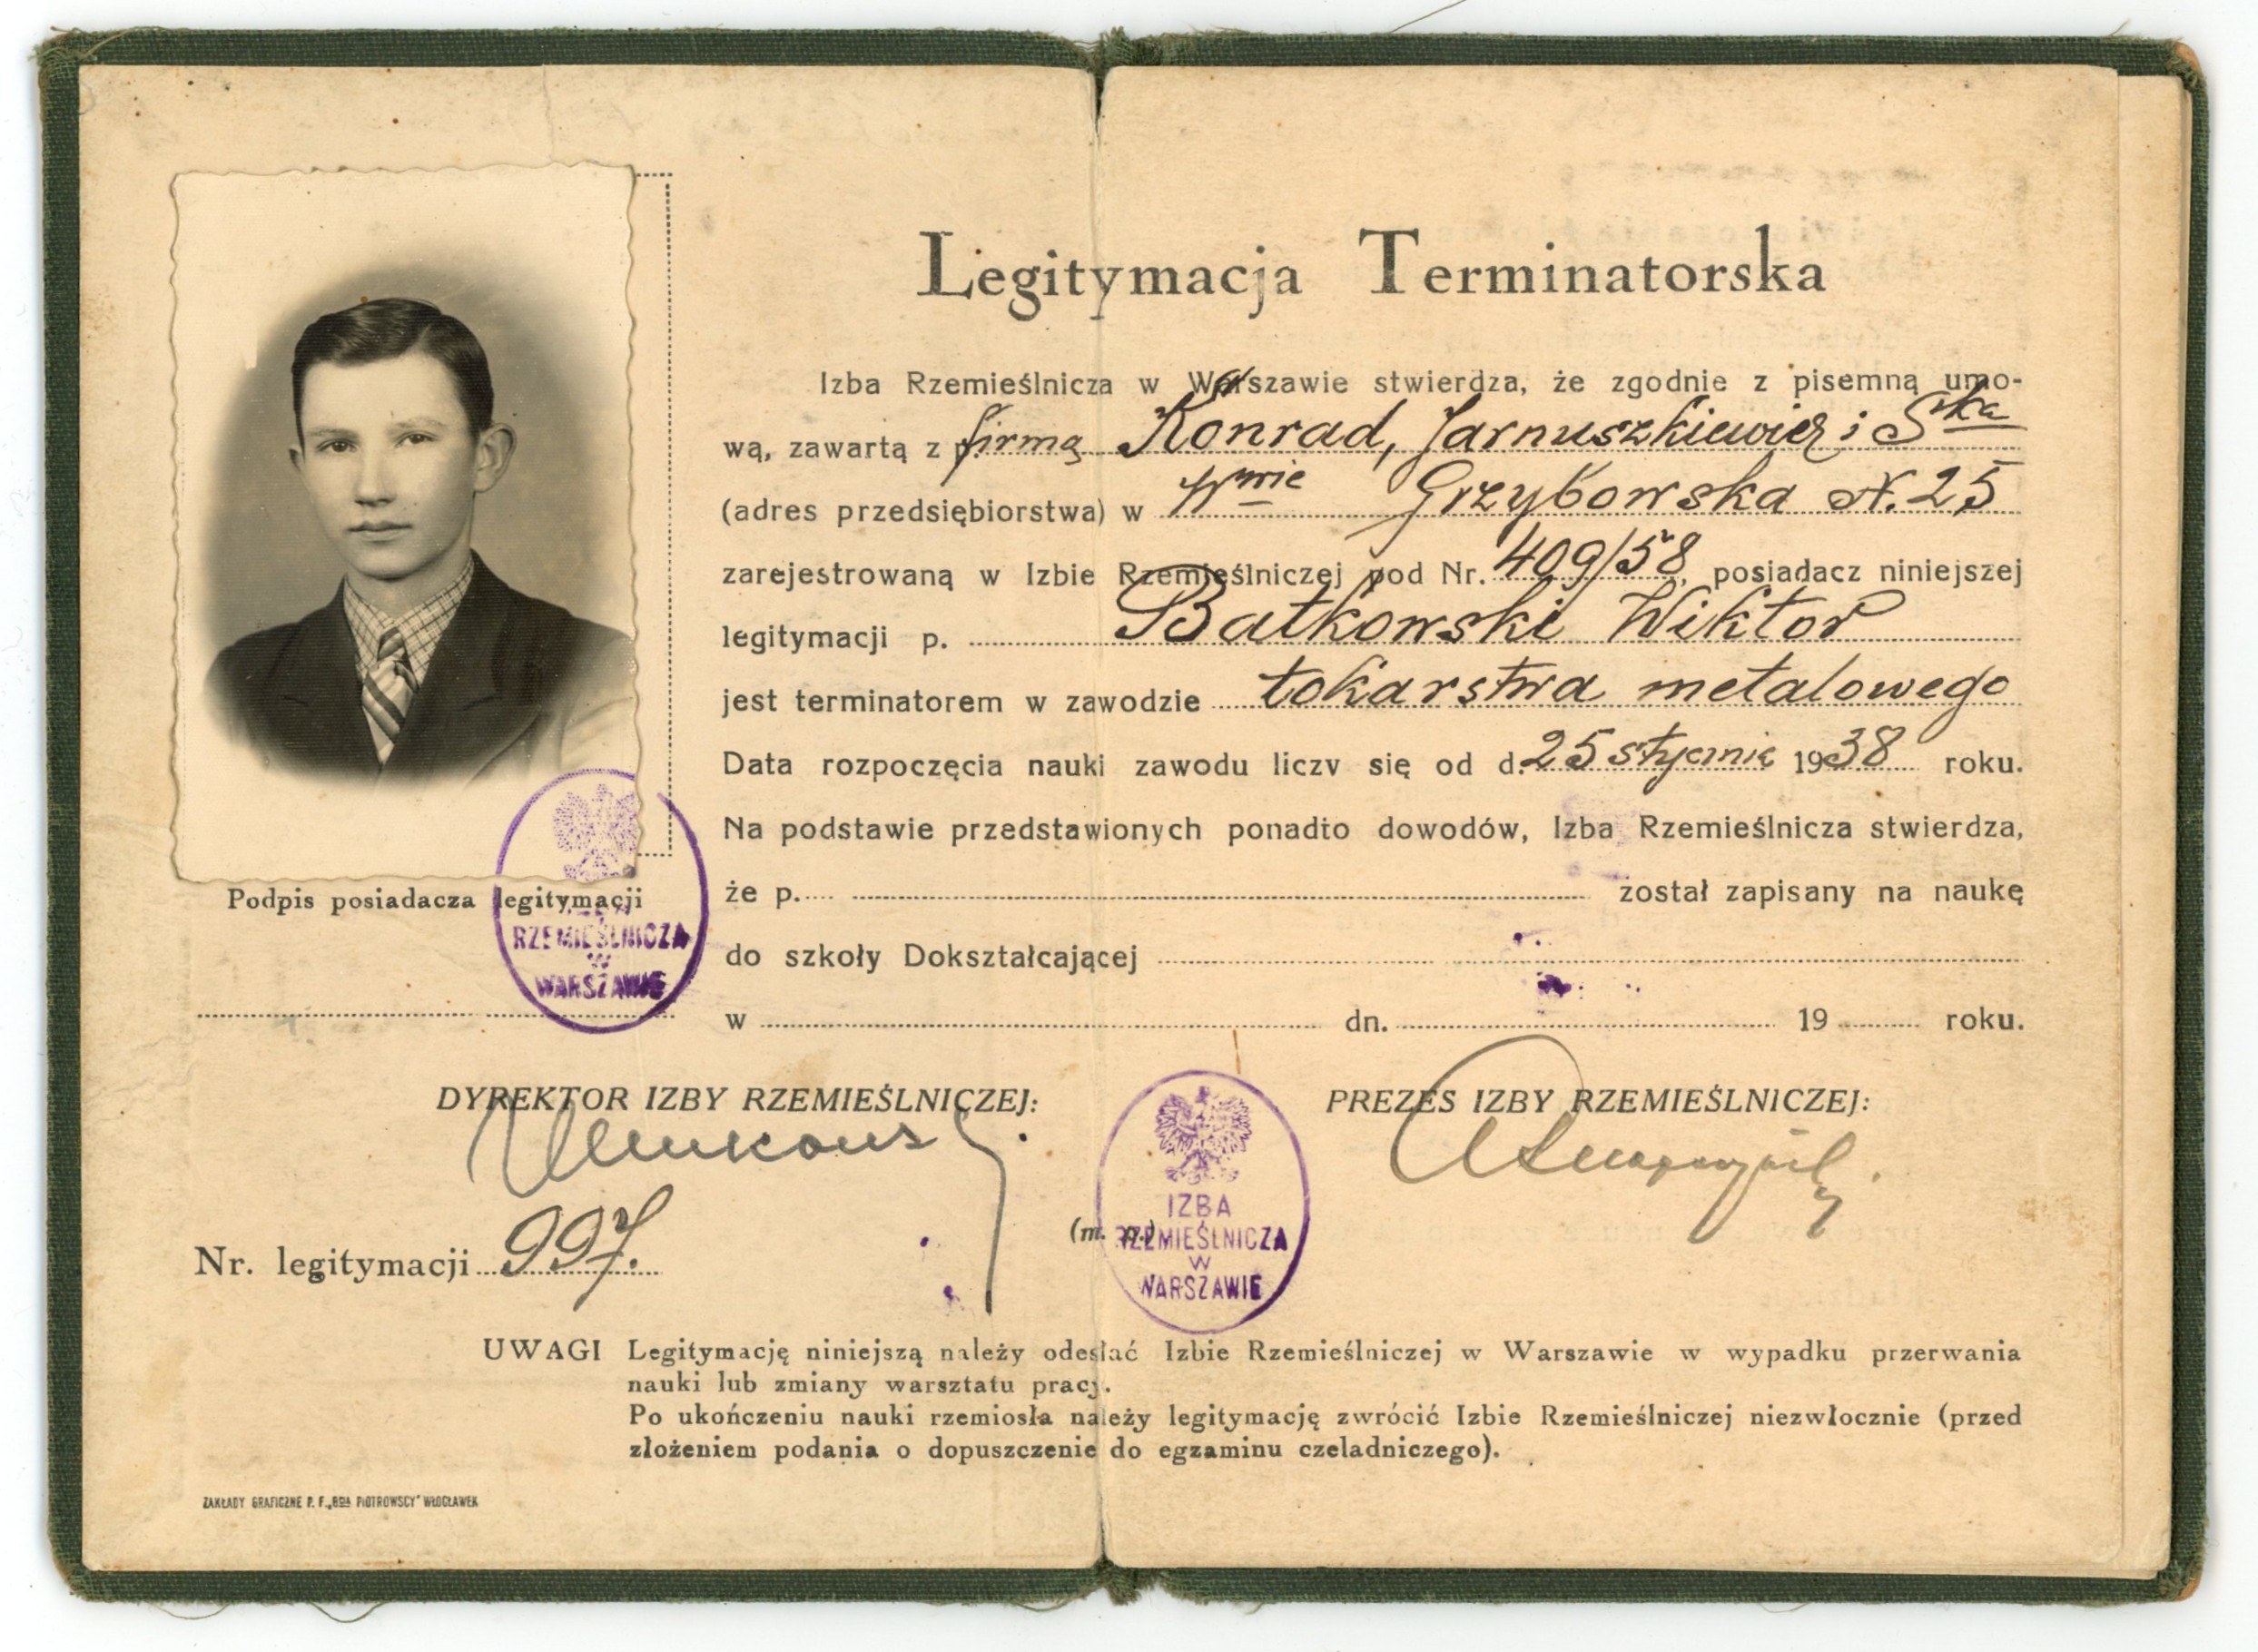 Legitymacja Terminatorska
Izba Rzemieślnicza w Warszawie stwierdza, że zgodnie z pisemną umo-
wą, zawartą z p. firmą Konrad, Jarnuszkiewicz i Ska
(adres przedsiębiorstwa) w Wwie Grzybowska N. 25
zarejestrowaną w Izbie Rzemieślniczej pod Nr. 409/58, posiadacz niniejszej
legitymacji p. Batkowski Wiktor
jest terminatorem w zawodzie tokarstwa metalowego
Data rozpoczęcia nauki zawodu liczy się od d. 25 stycznia 1938 roku.
Na podstawie przedstawionych ponadto dowodów, Izba Rzemieślnicza stwierdza,
że p. został zapisany na naukę
do szkoły Dokształcającej
w dn. 19 roku.
Podpis posiadacza legitymacji
RZEMIEŚLNICZA
W
WARSZAWIE
DYREKTOR IZBY RZEMIEŚLNICZEJ:
PREZES IZBY RZEMIEŚLNICZEJ:
(m. p.)
IZBA
RZEMIEŚLNICZA
W
WARSZAWIE
Nr. legitymacji 997.
UWAGI Legitymację niniejszą należy odesłać Izbie Rzemieślniczej w Warszawie w wypadku przerwania
nauki lub zmiany warsztatu pracy.
Po ukończeniu nauki rzemiosła należy legitymację zwrócić Izbie Rzemieślniczej niezwłocznie (przed
złożeniem podania o dopuszczenie do egzaminu czeladniczego).
ZAKŁADY GRAFICZNE P. F. „BCIA PIOTROWSCY" WŁOCŁAWEK